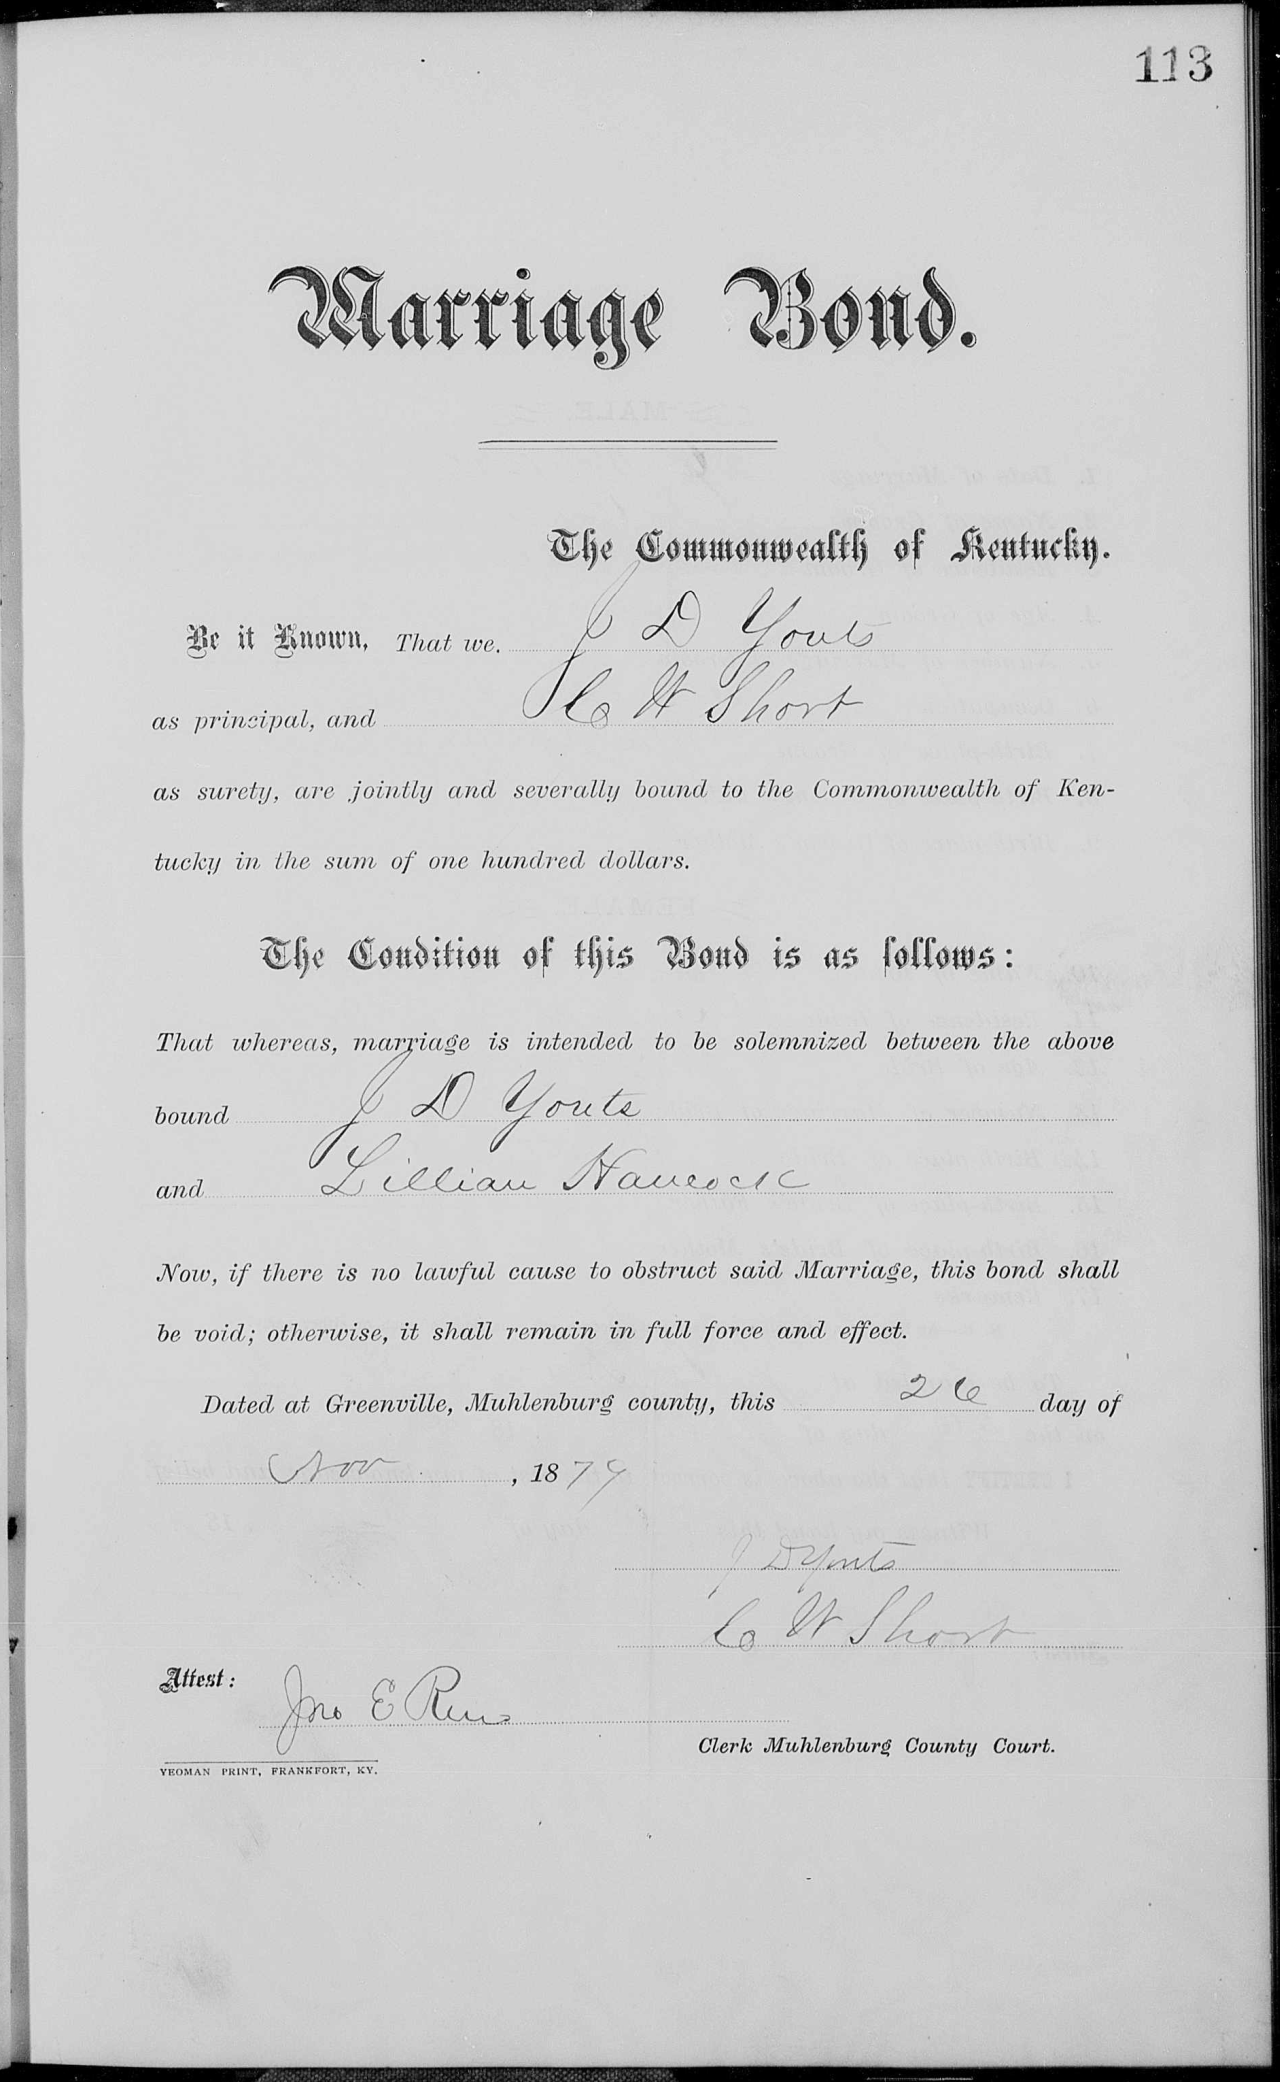 113
Marriage Bond.
The Commonwealth of Kentucky.
Be it Known, That we, J D Youts
as principal, and C W Short
as surety, are jointly and severally bound to the Commonwealth of Ken-
tucky in the sum of one hundred dollars.
The Condition of this Bond is as follows:
That whereas, marriage is intended to be solemnized between the above
bound J D Youts
and Lillian Hancock
Now, if there is no lawful cause to obstruct said Marriage, this bond shall
be void; otherwise, it shall remain in full force and effect.
Dated at Greenville, Muhlenburg county, this 26 day of
Nov , 1879
J D Youts
C W Short
Attest:
Jno E Reno
Clerk Muhlenburg County Court.
YEOMAN PRINT, FRANKFORT, KY.